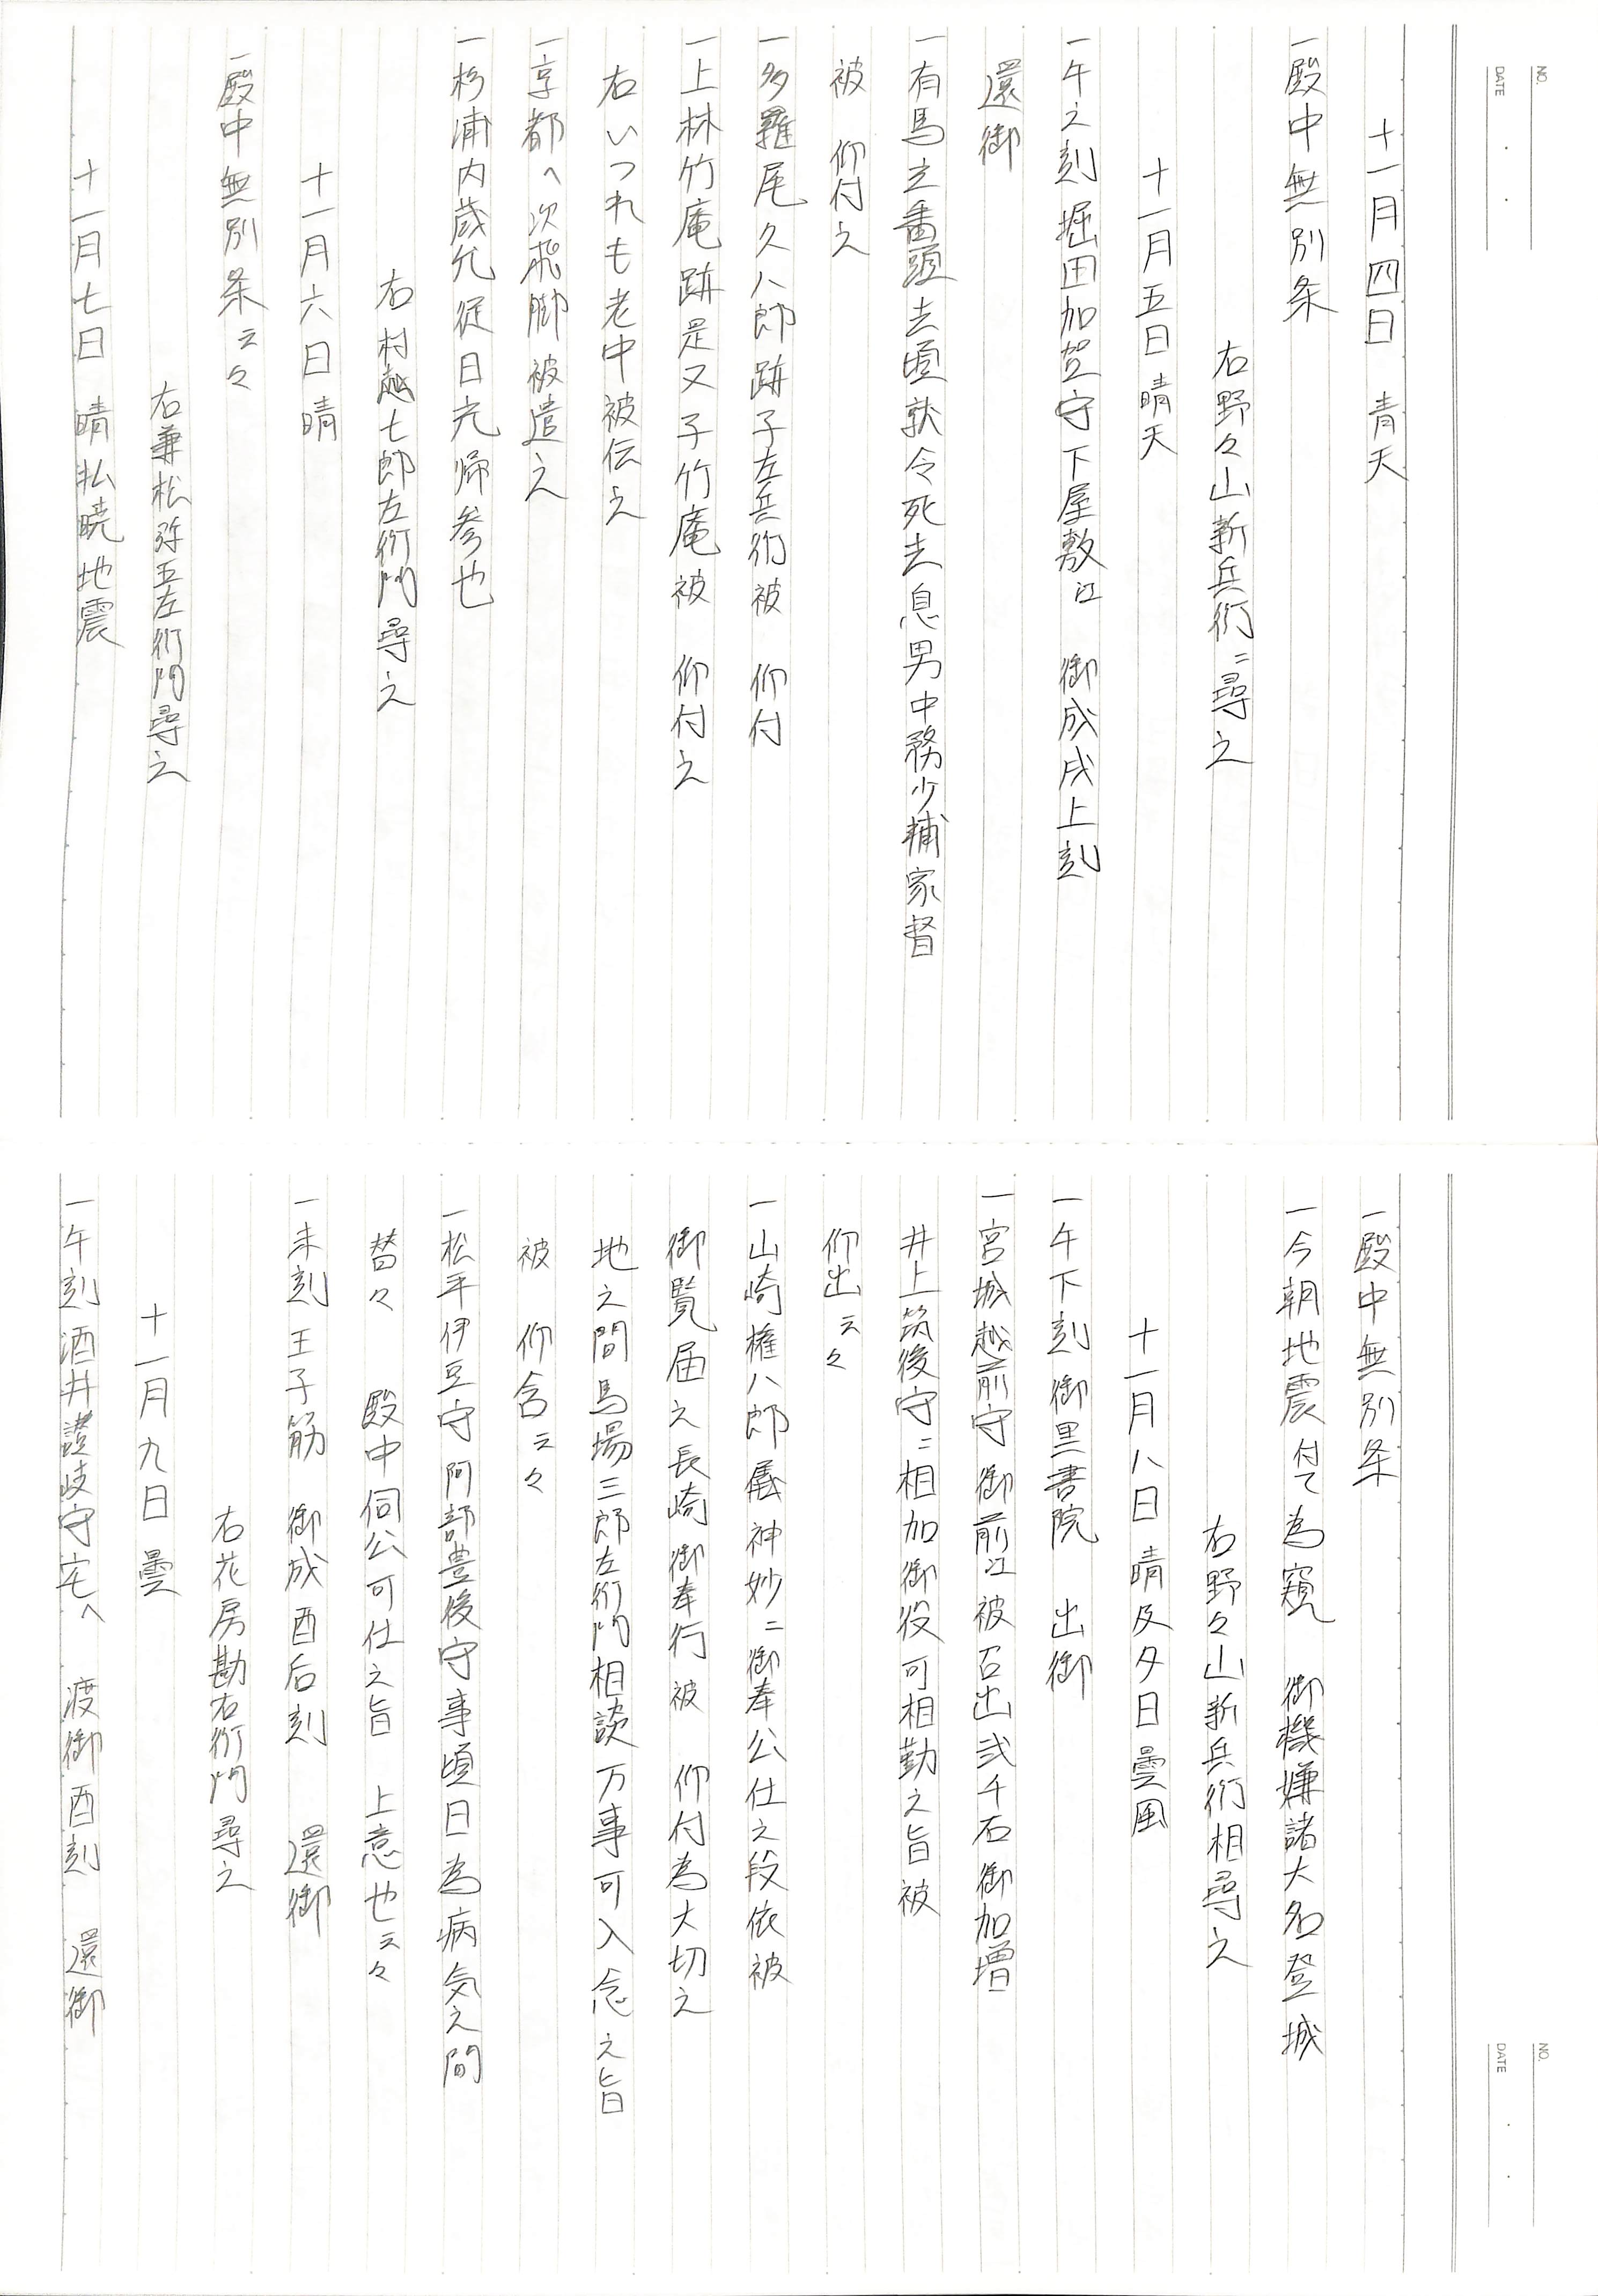 NO.
DATE
十一月四日　青天
一殿中無別条
右野々山新兵衛ニ尋之
十一月五日晴天
一午之刻堀田加賀守下屋敷江　御成戌上刻
還御
一有馬玄蕃頭去頃就令死去息男中務少輔家督
被　仰付之
一多羅尾久八郎跡子左兵衛被　仰付
一上林竹庵跡是又子竹庵被　仰付之
右いつれも老中被伝之
一京都へ次飛脚被遣之
一杉浦内蔵允従日光帰参也
右村越七郎左衛門尋之
十一月六日晴
一殿中無別条云々
右兼松弥五左衛門尋之
十一月七日　晴払暁地震
NO.
DATE
一殿中無別条
一今朝地震付て為窺　御機嫌諸大名登城
右野々山新兵衛相尋之
十一月八日晴及夕日曇風
一午下刻御黒書院　出御
一宮城越前守御前江被召出弐千石御加増
井上筑後守ニ相加御役可相勤之旨被
仰出云々
一山崎権八郎儀神妙ニ御奉公仕之段依被
御覧届之長崎御奉行被　仰付為大切之
地之間馬場三郎左衛門相談万事可入念之旨
被　仰含云々
一松平伊豆守阿部豊後守事頃日為病気之間
替々　殿中伺公可仕之旨　上意也云々
一未刻王子筋　御成酉后刻　還御
右花房勘右衛門尋之
十一月九日曇
一午刻酒井讃岐守宅へ　渡御酉刻　還御